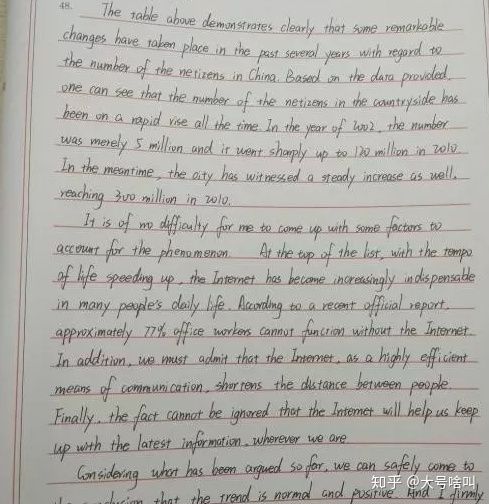 48.
The table above demonstrates clearly that some remarkable
changes have taken place in the past several years with regard to
the number of the netizens in China. Based on the data provided,
one can see that the number of the netizens in the countryside has
been on a rapid rise all the time. In the year of 2002, the number
was merely 5 million and it went sharply up to 120 million in 2010.
In the meantime, the city has witnessed a steady increase as well,
reaching 300 million in 2010.
It is of no difficulty for me to come up with some factors to
account for the phenomenon. At the top of the list, with the tempo
of life speeding up, the Internet has become increasingly indispensable
in many people's daily life. According to a recent official report,
approximately 77% office workers cannot function without the Internet.
In addition, we must admit that the Internet, as a highly efficient
means of communication, shortens the distance between people.
Finally, the fact cannot be ignored that the Internet will help us keep
up with the latest information, wherever we are
Considering what has been argued so far, we can safely come to
that the trend is normal and positive. And I firmly
知乎 @大号啥叫